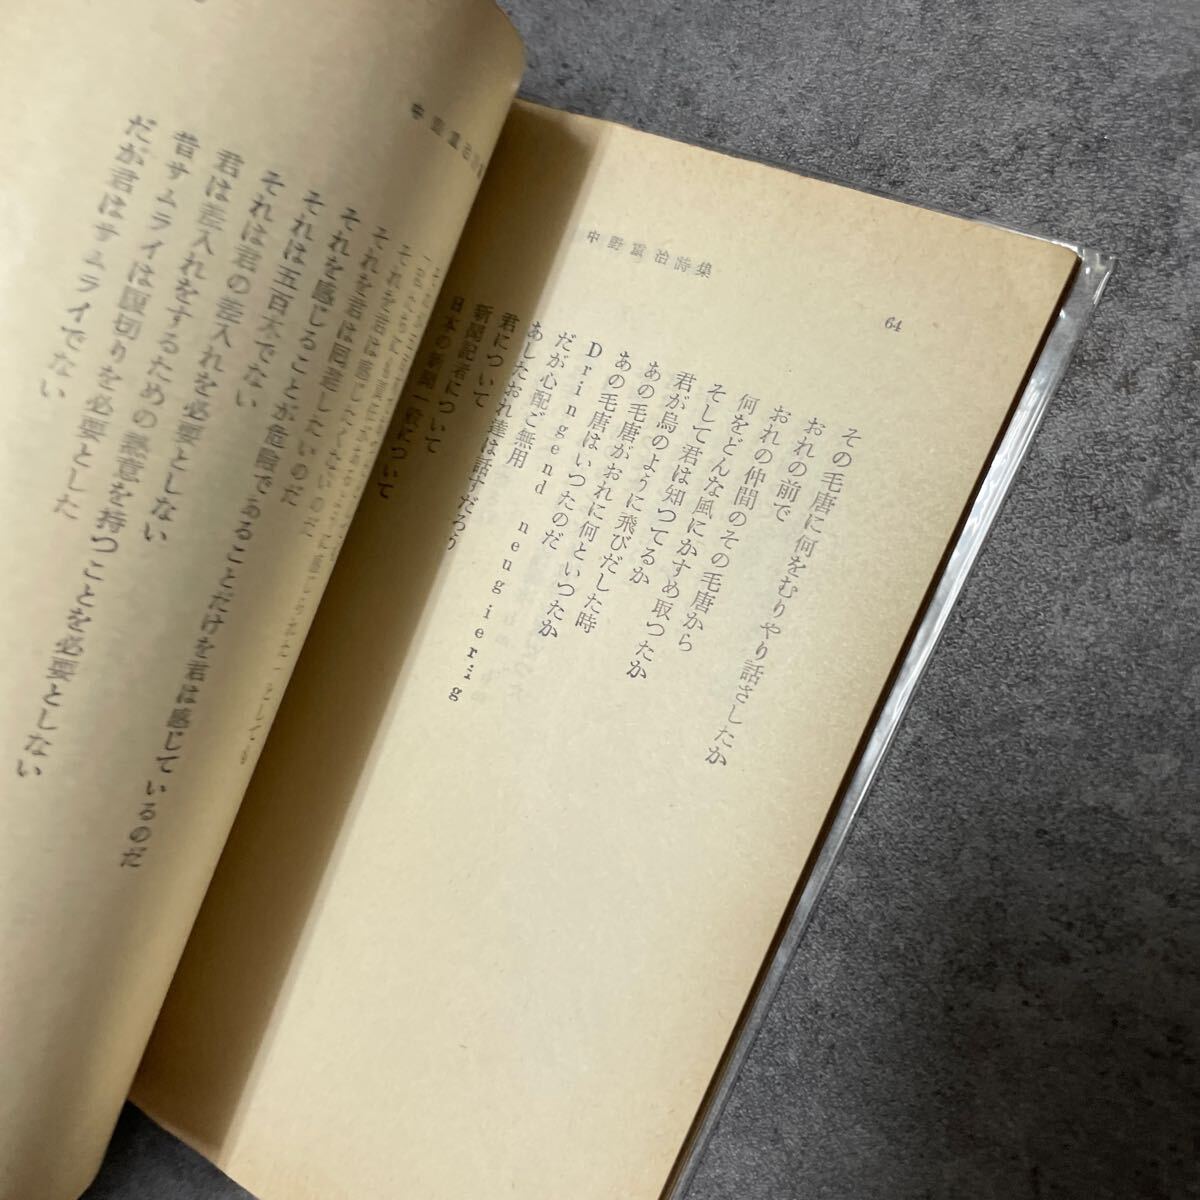 中野重治詩集
64
その毛唐に何をむりやり話さしたか
おれの前で
おれの仲間のその毛唐から
何をどんな風にかすめ取つたか
そして君は知つてるか
君が烏のように飛びだした時
あの毛唐がおれに何といつたか
あの毛唐はいつたのだ
Dringend nengierig
だが心配ご無用
あしたおれ達は話すだろう
君について
新聞記者について
日本の新聞一般について
それを君は感じたくないのだ
それを君は回避したいのだ
それを感じることが危険であることだけを君は感じているのだ
それは五百木でない
それは君の差入れを必要としない
君は差入れをするための熱意を持つことを必要としない
昔サムライは腹切りを必要とした
だが君はサムライでない